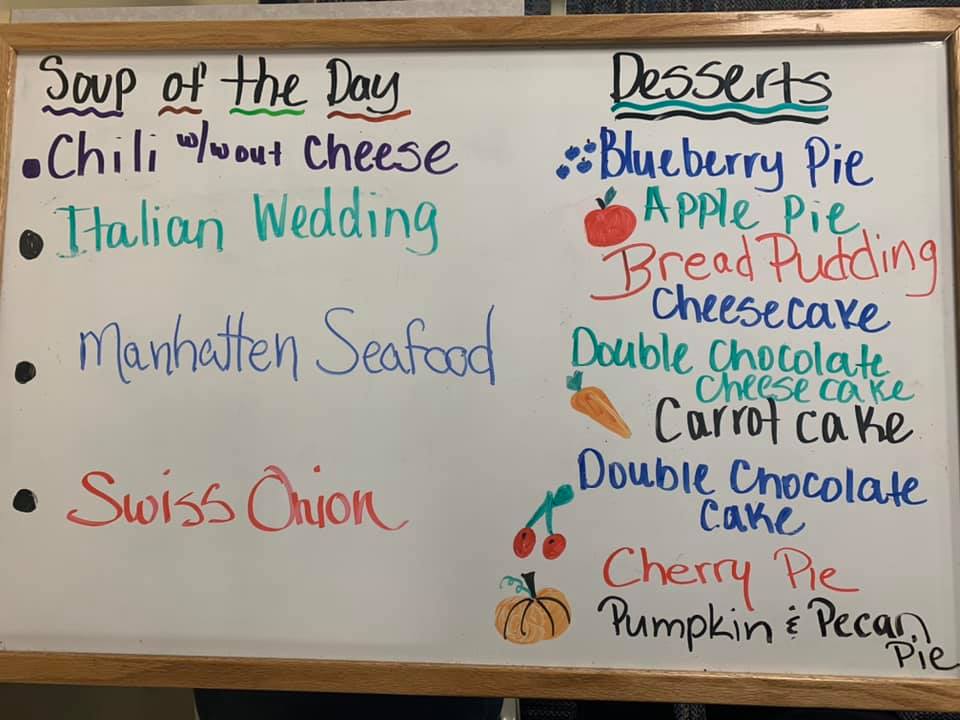 Soup of the Day
Chili w/wout Cheese
Italian Wedding
Manhatten Seafood
Swiss Onion
Desserts
Blueberry Pie
Apple Pie
Bread Pudding
Cheesecake
Double Chocolate
Cheese cake
Carrot cake
Double Chocolate
Cake
Cherry Pie
Pumpkin & Pecan
Pie